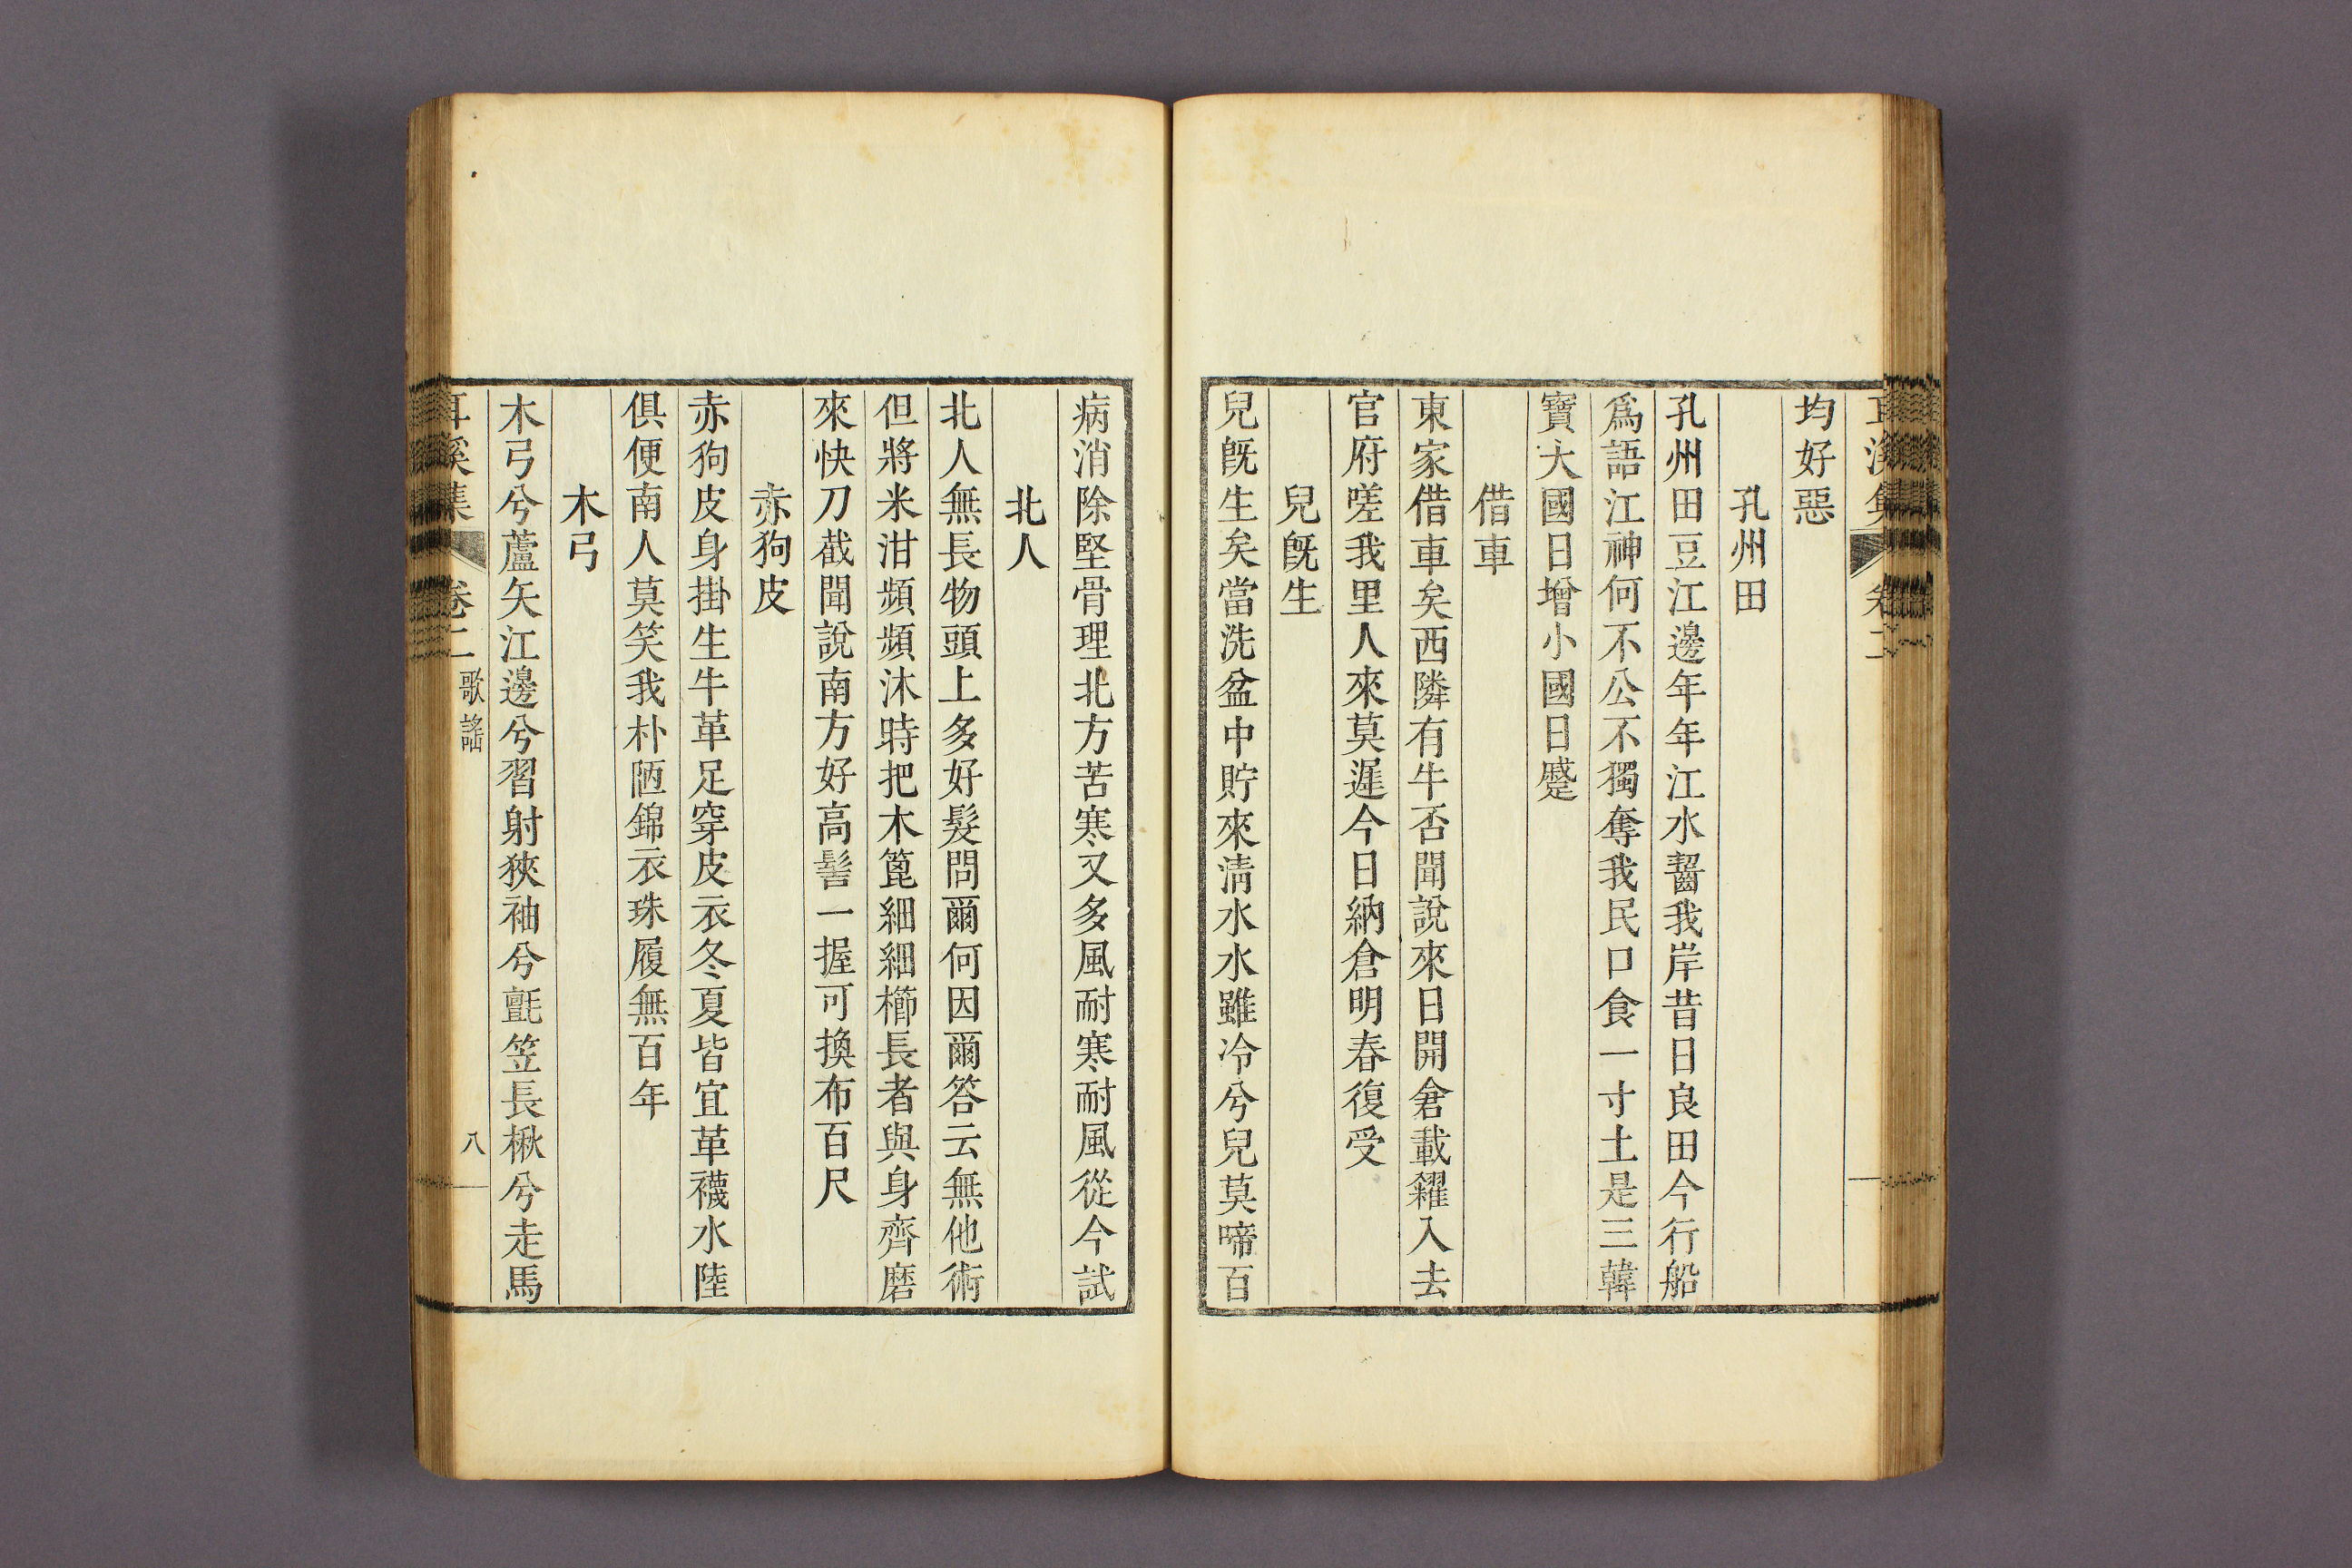 均好惡
孔州田
孔州田豆江邊年年江水齧我岸昔日良田今行船
爲語江神何不公不獨奪我民口食一寸土是三韓
寶大國日增小國日蹙
借車
東家借車矣西隣有牛否聞說來日開倉載糴入去
官府嗟我里人來莫遲今日納倉明春復受
兒旣生
兒旣生矣當洗盆中貯來淸水水雖冷兮兒莫啼百
病消除堅骨理北方苦寒又多風耐寒耐風從今試
北人
北人無長物頭上多好髮問爾何因爾答云無他術
但將米泔頻頻沐時把木篦細細櫛長者與身齊磨
來快刀截聞說南方好高髻一握可換布百尺
赤狗皮
赤狗皮身掛生牛革足穿皮衣冬夏皆宜革襪水陸
俱便南人莫笑我朴陋錦衣珠履無百年
木弓
木弓兮蘆矢江邊兮習射狹袖兮氈笠長楸兮走馬
耳溪集 卷二 歌謠 八